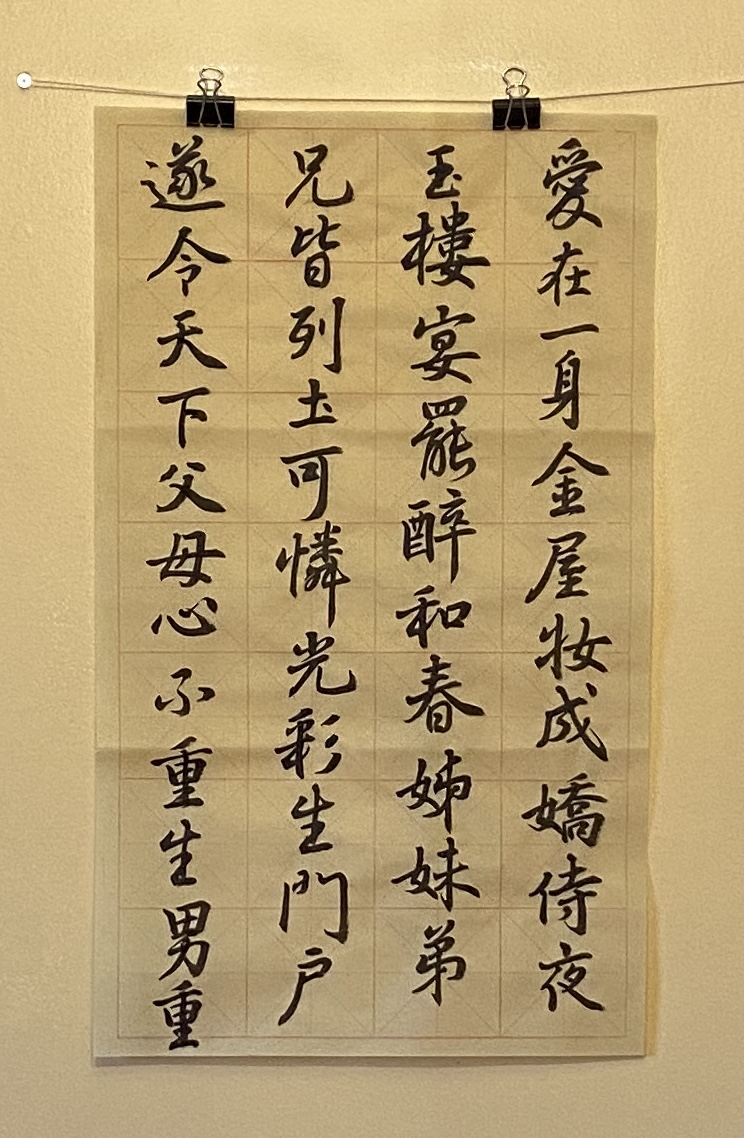 愛在一身金屋妝成嬌侍夜
玉樓宴罷醉和春姊妹弟
兄皆列土可憐光彩生門户
遂令天下父母心不重生男重